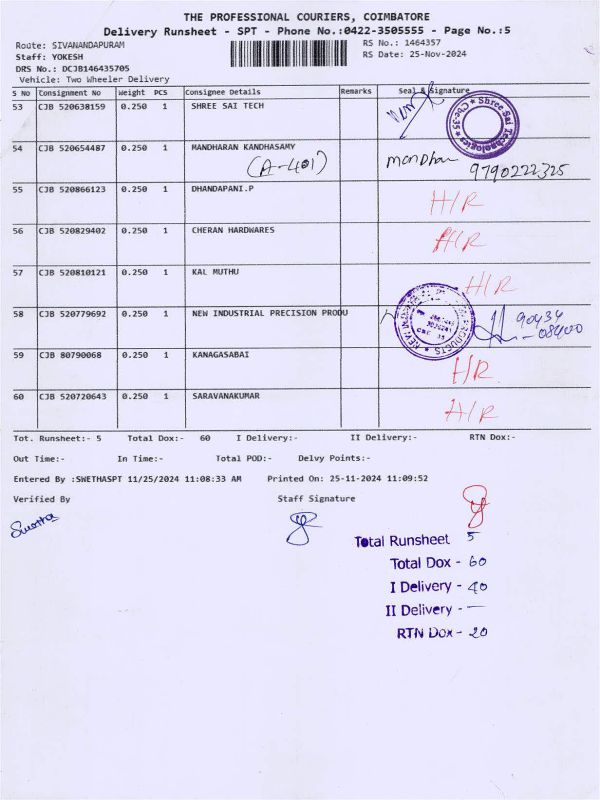 THE PROFESSIONAL COURIERS, COIMBATORE
Delivery Runsheet - SPT - Phone No.:0422-3505555 - Page No.:5
Route: SIVANANDAPURAM
RS No.: 1464357
Staff: YOKESH
RS Date: 25-Nov-2024
DRS No.: DCJB146435705
Vehicle: Two Wheeler Delivery
S No Consignment No Weight PCS Consignee Details Remarks Seal & Signature
53 CJB 520638159 0.250 1 SHREE SAI TECH
Shree Sai Technologies Cbe-35
54 CJB 520654487 0.250 1 MANDHARAN KANDHASAMY
(A-401) 9790222325
55 CJB 520866123 0.250 1 DHANDAPANI.P H/R
56 CJB 520829402 0.250 1 CHERAN HARDWARES H/R
57 CJB 520810121 0.250 1 KAL MUTHU H/R
58 CJB 520779692 0.250 1 NEW INDUSTRIAL PRECISION PRODU
90434
-08400
59 CJB 80790068 0.250 1 KANAGASABAI H/R
60 CJB 520720643 0.250 1 SARAVANAKUMAR H/R
Tot. Runsheet:- 5 Total Dox:- 60 I Delivery:- II Delivery:- RTN Dox:-
Out Time:- In Time:- Total POD:- Delvy Points:-
Entered By :SWETHASPT 11/25/2024 11:08:33 AM Printed On: 25-11-2024 11:09:52
Verified By Staff Signature
Swetha
Total Runsheet 5
Total Dox - 60
I Delivery - 40
II Delivery - —
RTN Dox - 20